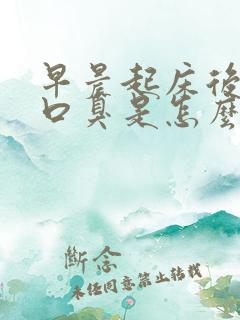 早晨起床後
口臭是怎麼
斷念
未经同意禁止转载